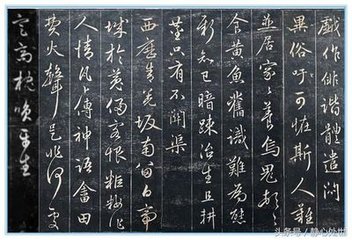 戲作俳諧體遣悶
異俗吁可怪斯人難
並居家々養烏鬼頓々
食黃魚舊識難為態
新知已暗疎治生且耕
鑿只有不關渠
西歷青羌坂南留白帝
城於菟侵客恨粔籹作
人情瓦卜傳神語畬田
費火聲是非何處
定高枕笑浮生
头条号 / 静心处世